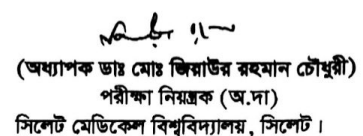 (অধ্যাপক ডাঃ মোঃ জিয়াউর রহমান চৌধুরী)
পরীক্ষা নিয়ন্ত্রক (অ.দা)
সিলেট মেডিকেল বিশ্ববিদ্যালয়, সিলেট।